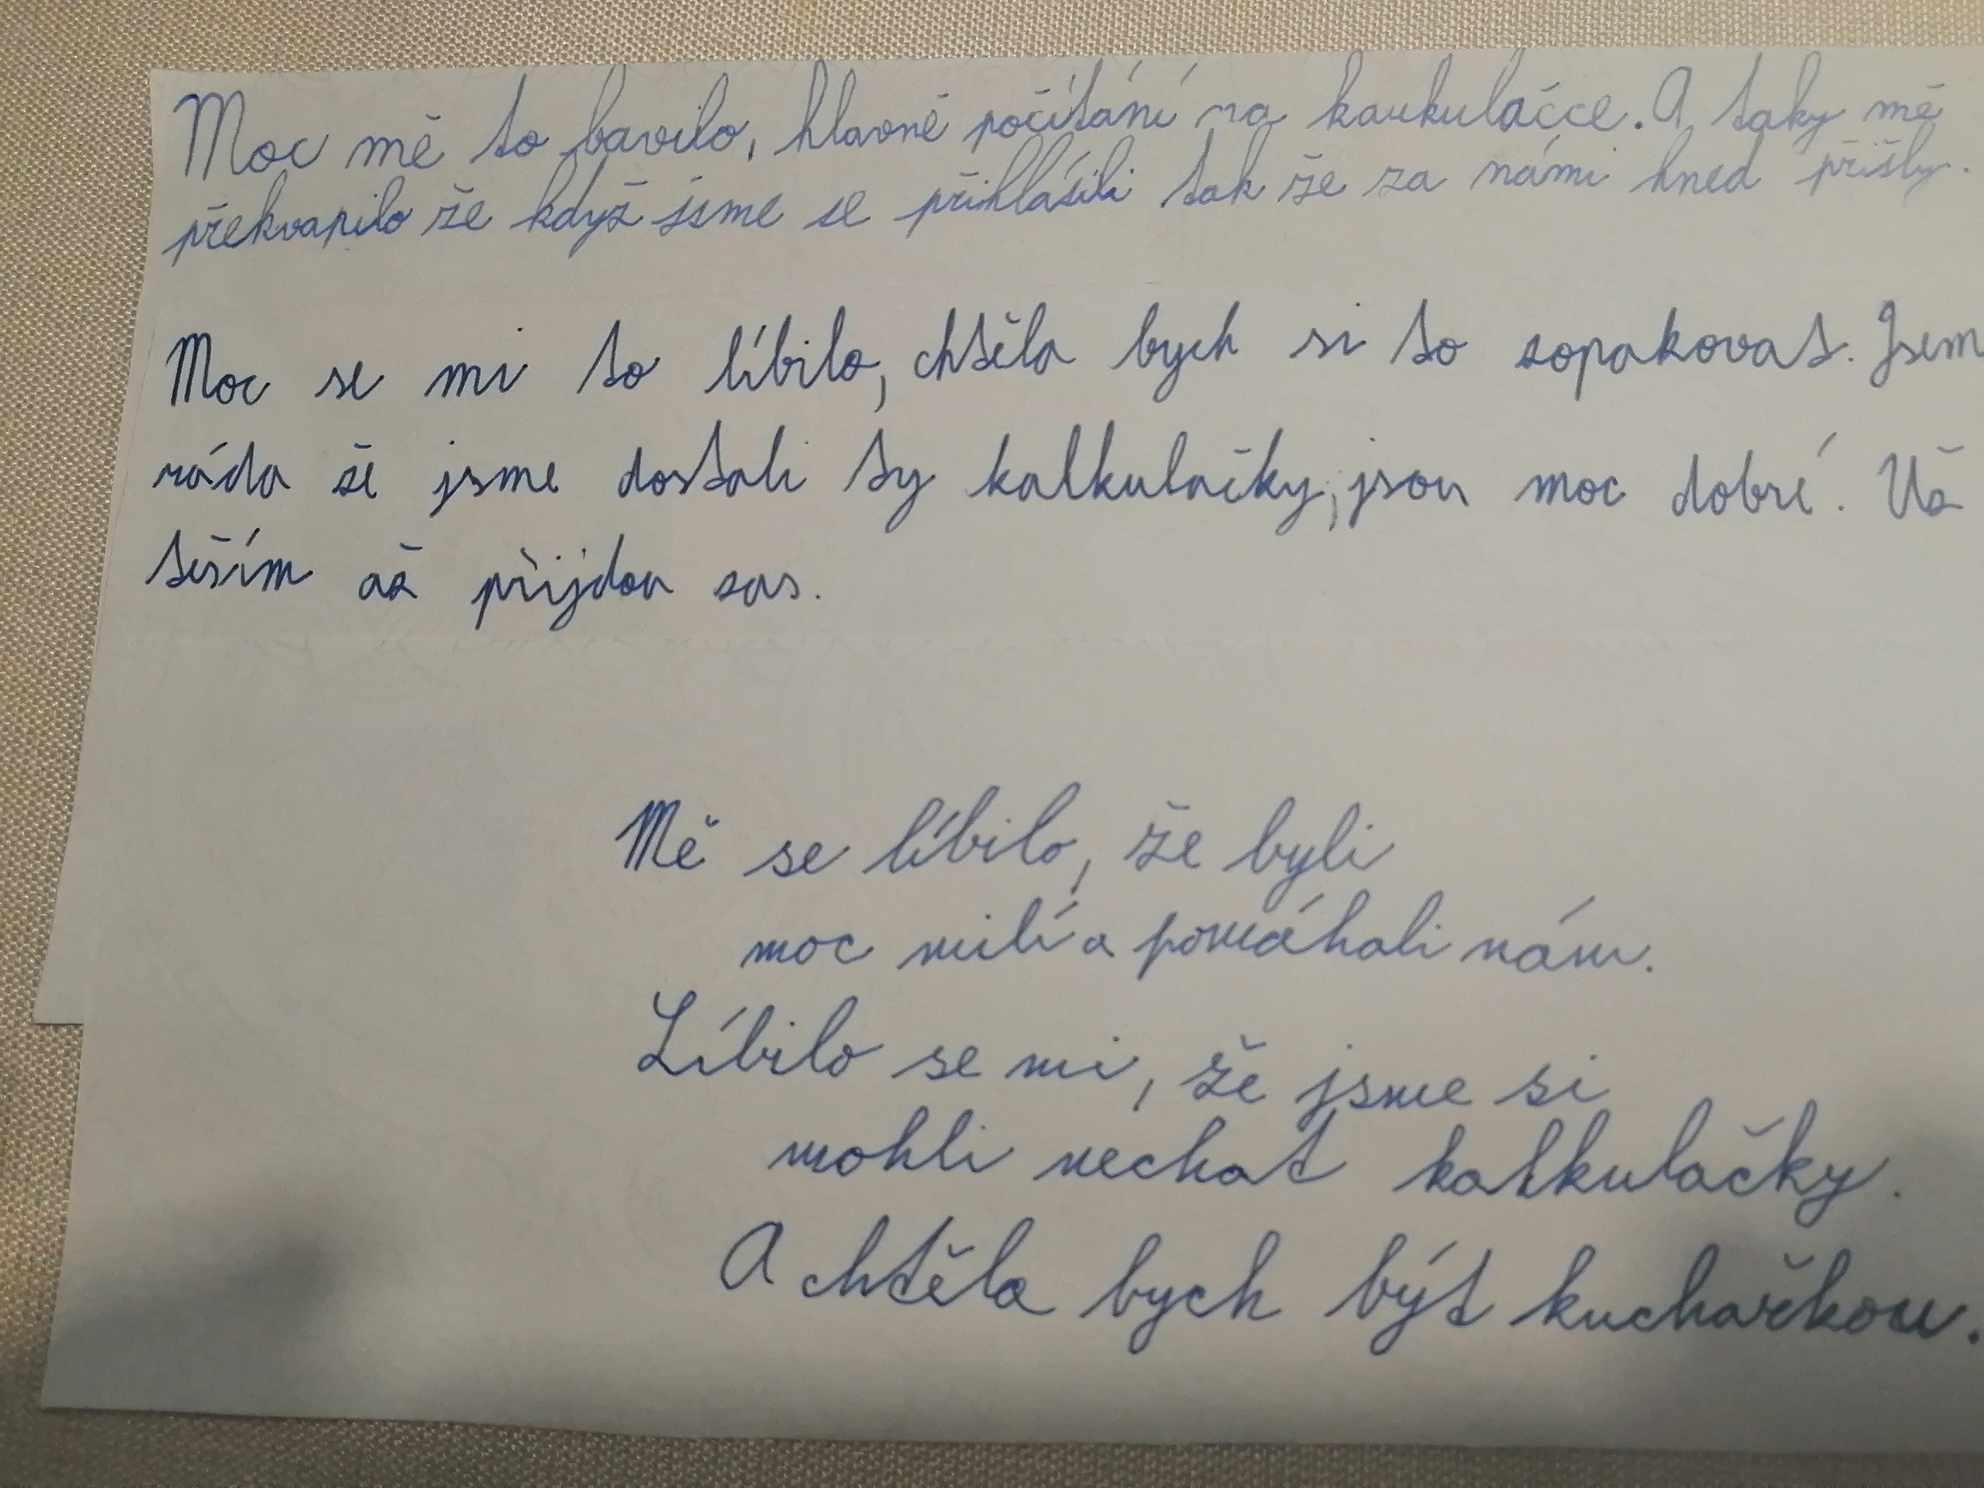 Moc mě to bavilo, hlavně počítání na kaukulačce. A taky mě
překvapilo že když jsme se přihlásili tak že za námi hned přišly.
Moc se mi to líbilo, chtěla bych si to zopakovat. Jsem
ráda že jsme dostali ty kalkulačky, jsou moc dobré. Už
těším až přijdou zas.
Mě se líbilo, že byli
moc milí a pomáhali nám.
Líbilo se mi, že jsme si
mohli nechat kalkulačky.
A chtěla bych být kuchařkou.